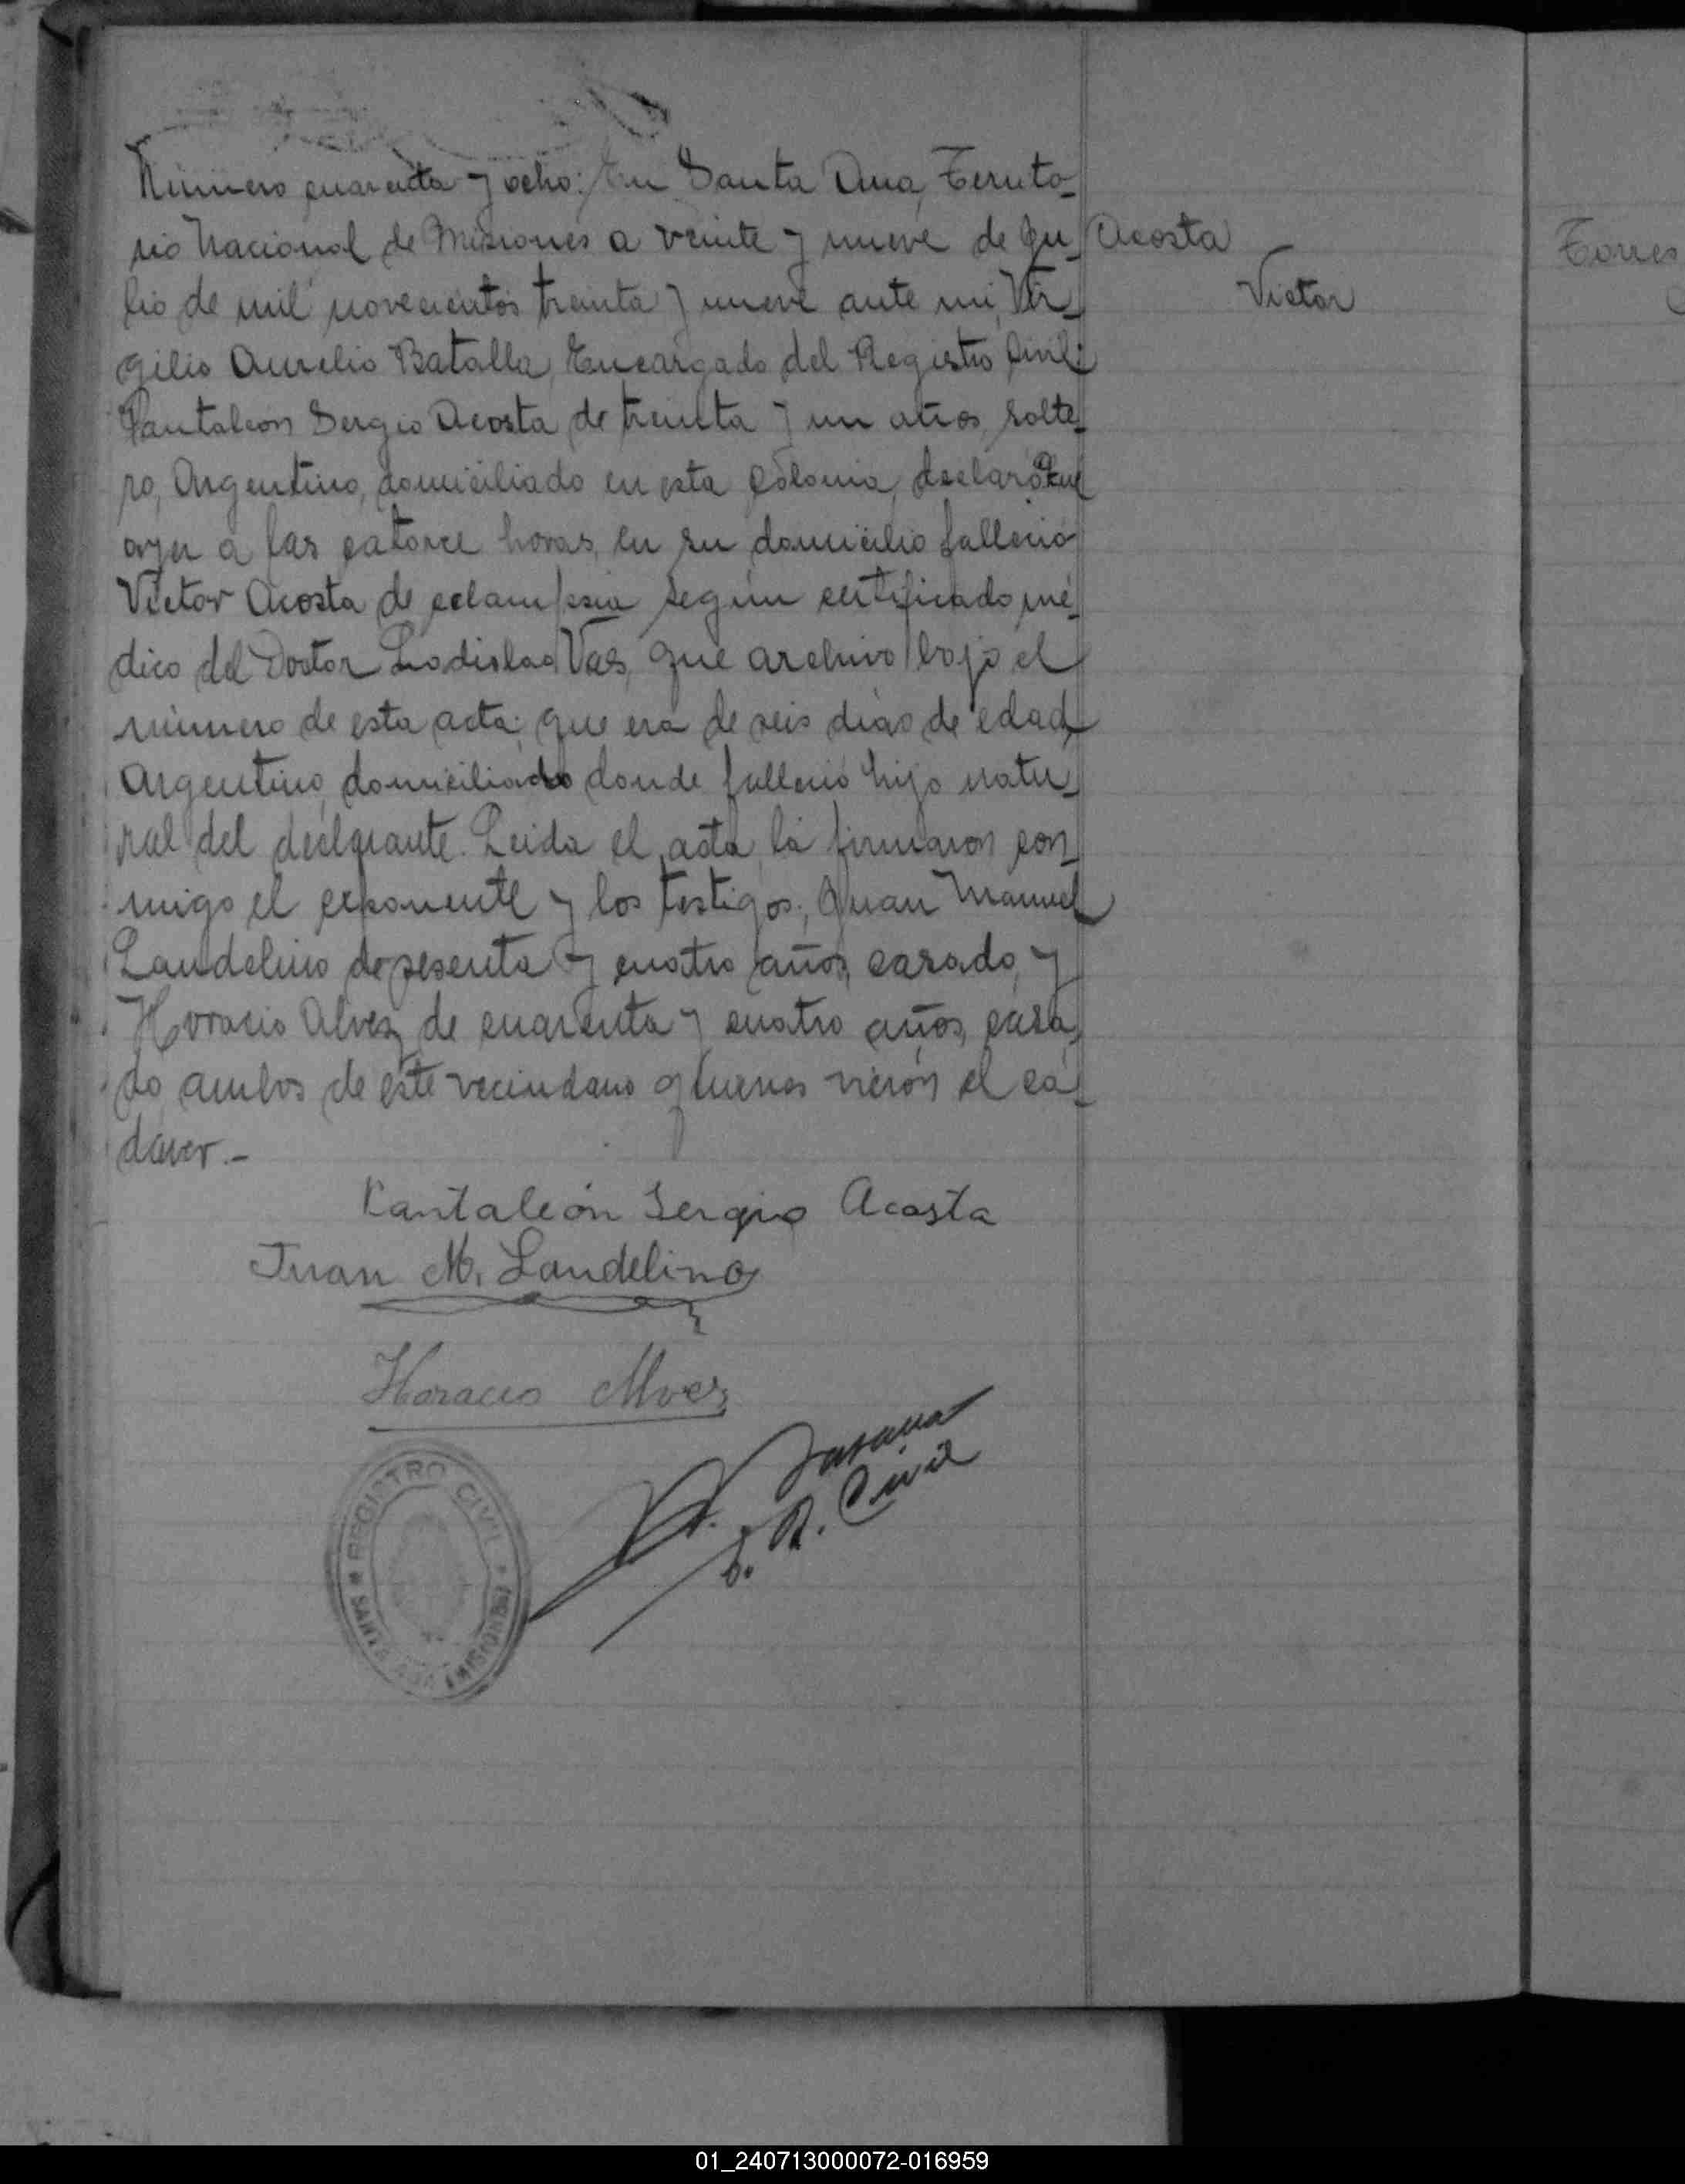 Número cuarenta y ocho: En Santa Ana, Territo-
rio Nacional de Misiones a veinte y nueve de Ju-
lio de mil novecientos treinta y nueve ante mi, Vir-
gilio Aurelio Batalla, Encargado del Registro Civil:
Pantaleón Sergio Acosta de treinta y un años, solte-
ro, Argentino, domiciliado en esta Colonia, declaró que
ayer a las catorce horas, en su domicilio falleció
Victor Acosta de eclampsia según certificado mé-
dico del Doctor Ladislao Vas, que archivo bajo el
número de esta acta; que era de seis días de edad,
Argentino, domiciliado donde falleció hijo natu-
ral del declarante. Leida el acta la firmaron con-
migo el exponente y los testigos: Juan Manuel
Landelino de sesenta y cuatro años, casado, y
Horacio Alvez de cuarenta y cuatro años, casa-
do ambos de este vecindario quienes vieron el ca-
daver.-
Acosta
Victor
Torres
Pantaleón Sergio Acosta
Juan M. Landelino
Horacio Alvez
E. R. Civil
REGISTRO CIVIL
SANTA ANA (MISIONES)
01_240713000072-016959